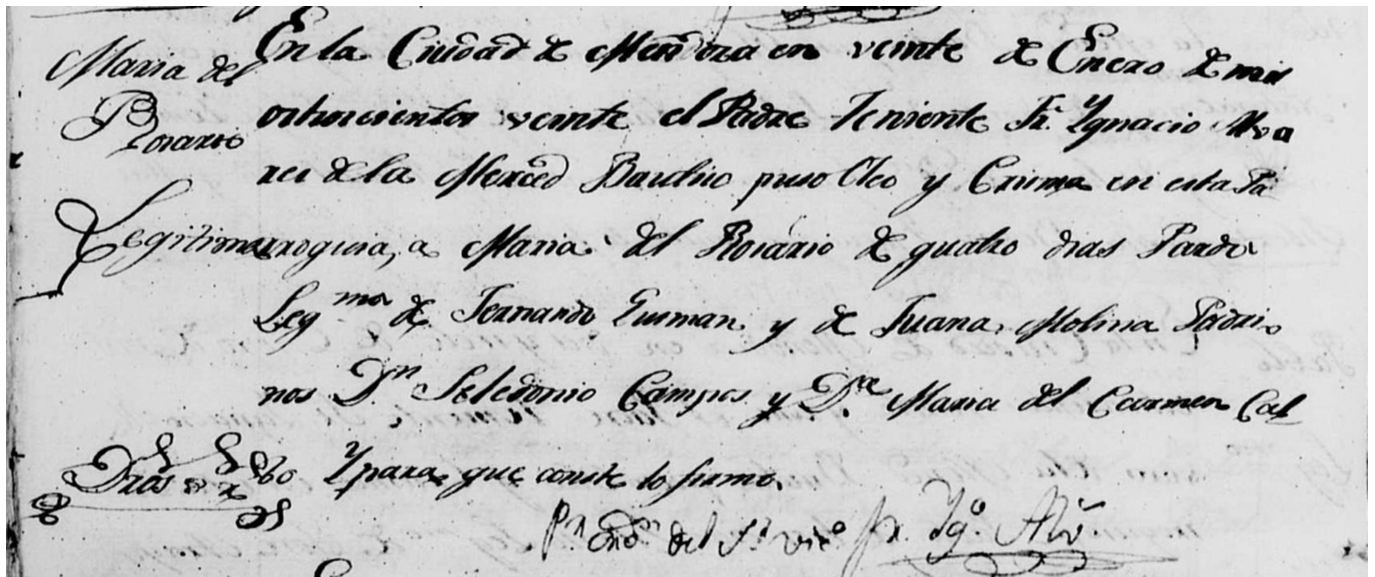 Maria del
Rosario
Legitima
En la Ciudad de Mendoza en veinte de Enero de mil
ochocientos veinte el Padre Teniente Fr. Ygnacio Alva
res de la Merced Bautizo puso Oleo y Crisma en esta Pa
rroquia, a Maria del Rosario de quatro dias Parda
Legma de Fernando Gusman y de Juana Molina Padri
nos Dn Seledonio Campos y Da Maria del Carmen Cal
Y para que conste lo firmo.
Pr del Sr Fr. Ygo Alvz